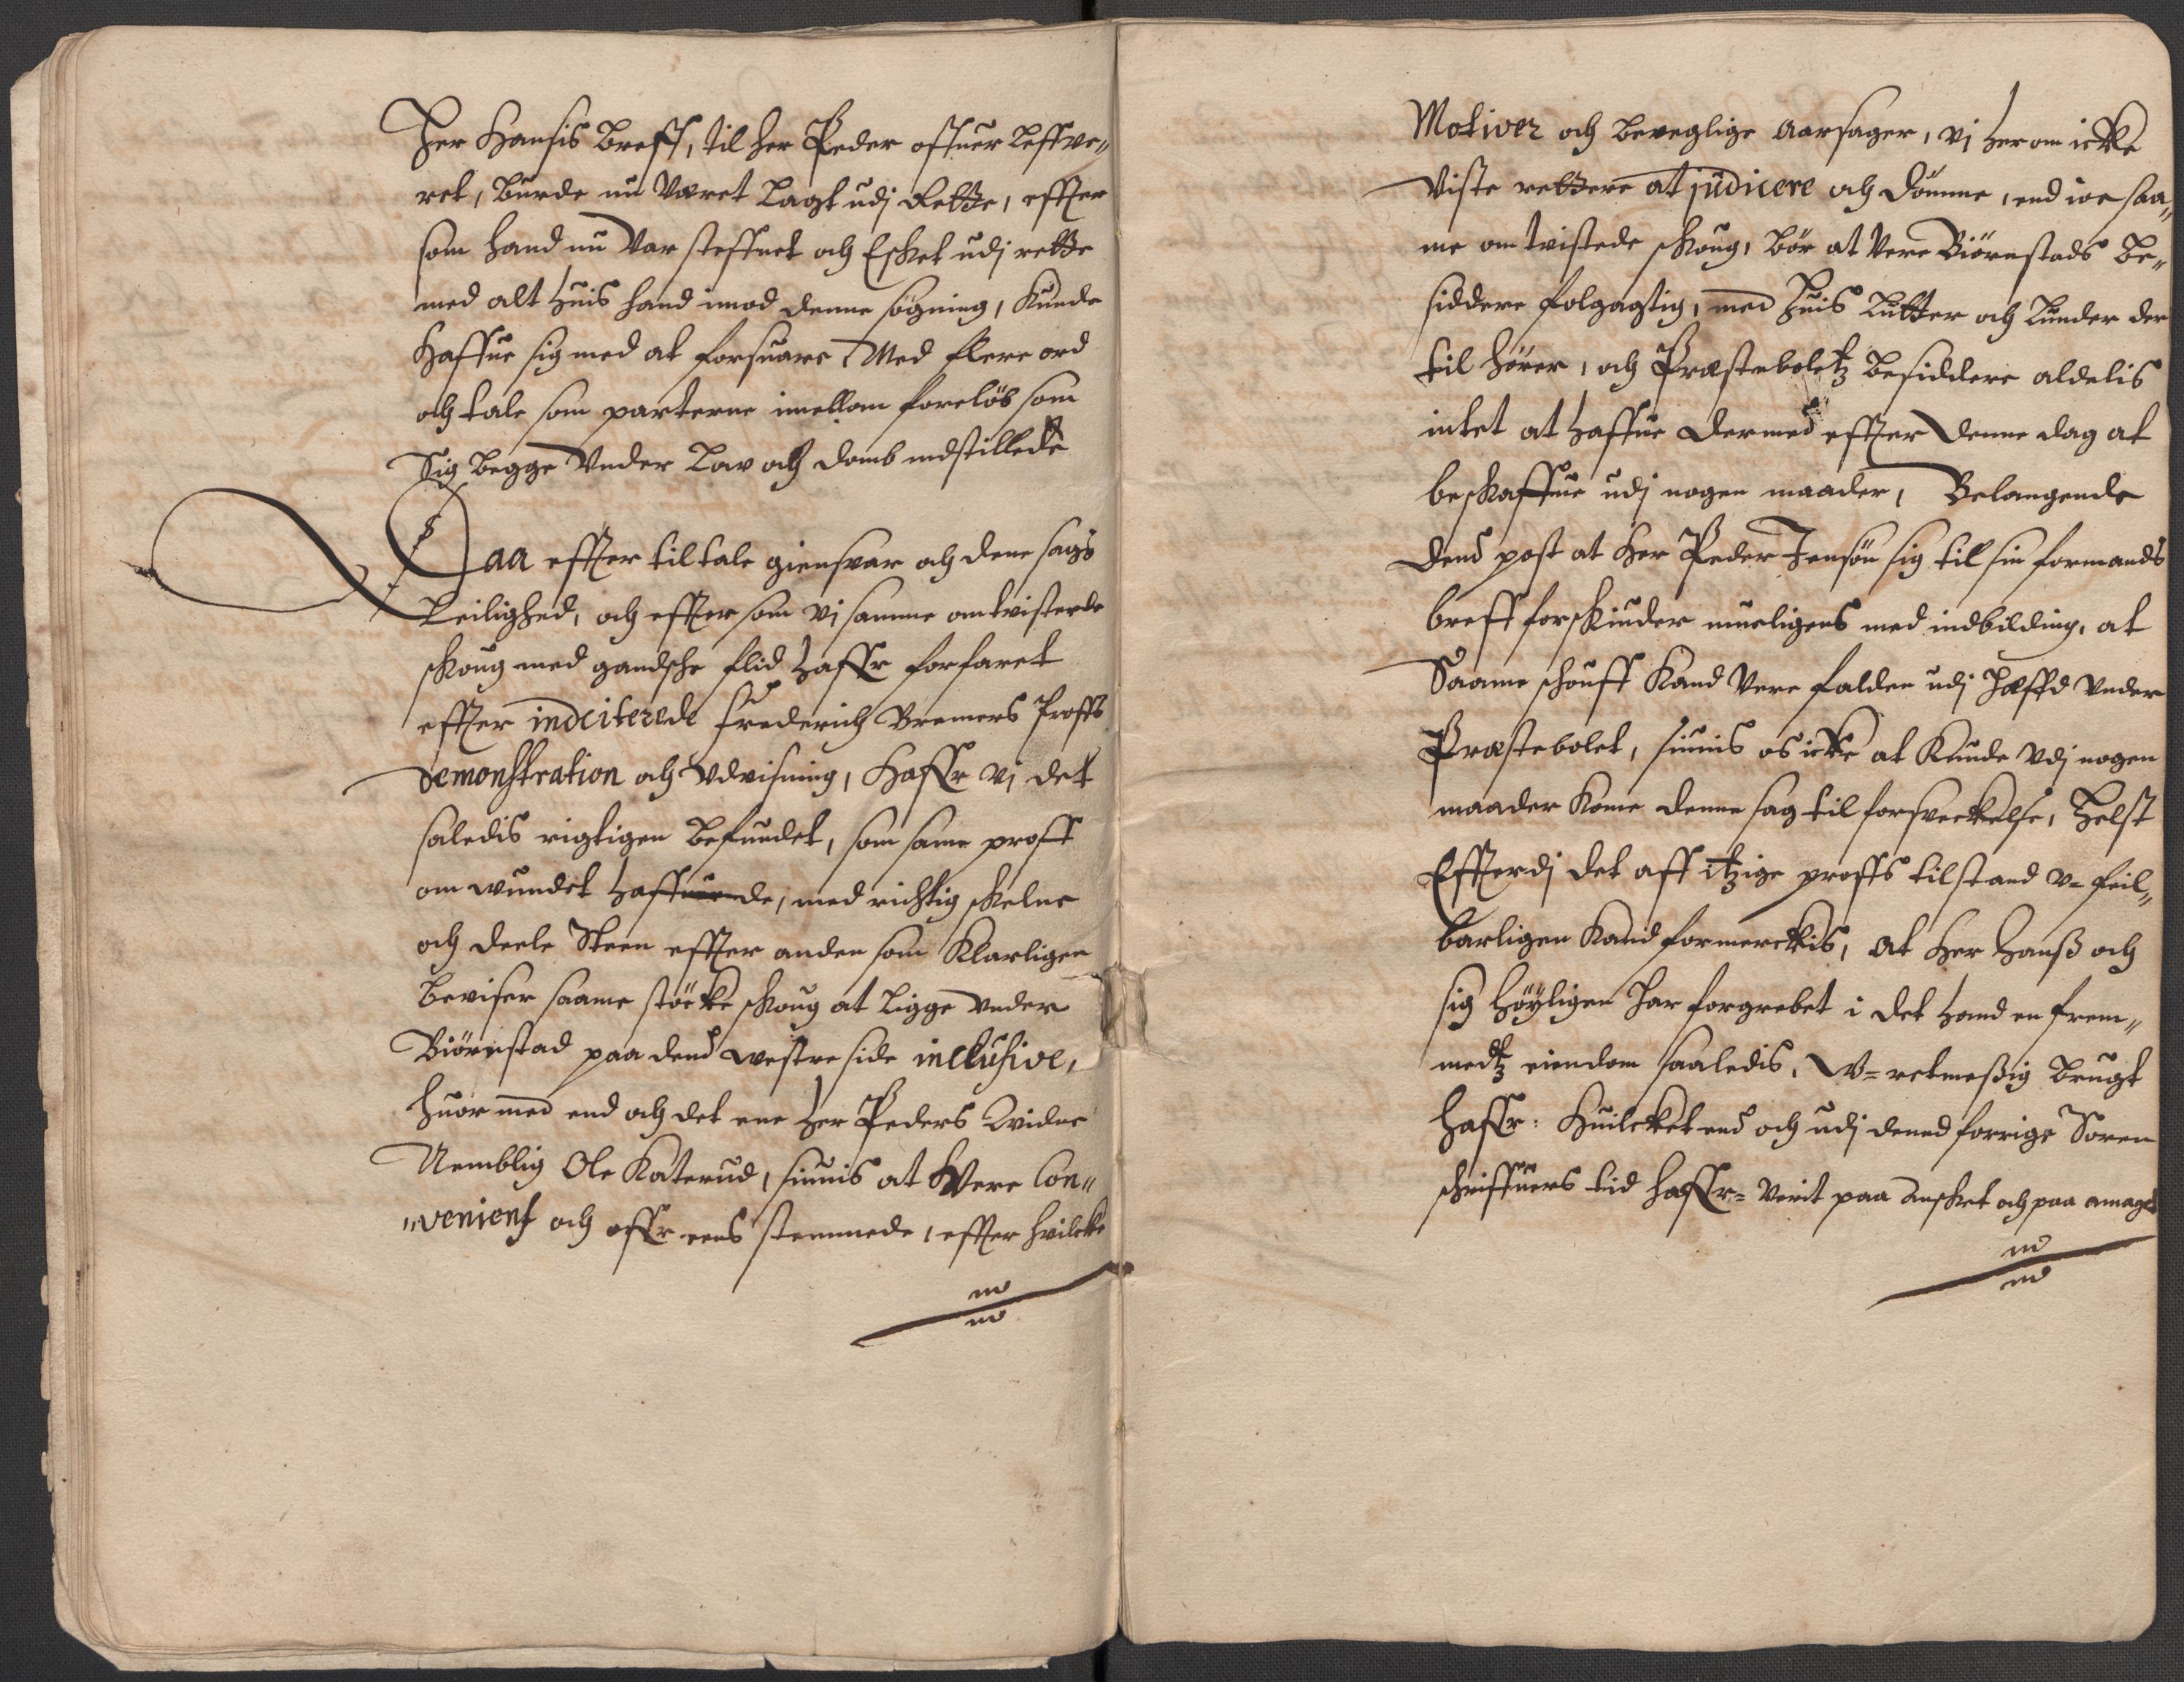 Her Hansis breff, til her Peder offuer leffve„
ret, burde nu Været Lagt udj Rette, effter
som hand nu Var steffnet och Esket udj rette
med alt huis hand imod denne søgning, kunde
Haffue sig med at forsuare Med flere ord
och tale som parterne imellom foreløb som
Sig begge Vnder Low och domb indstillede
Daa effter tiltale giensvar och dene sags
Leilighed, och effter som Vj samme omtvistede
skoug med gandsche flid haffr forfaret
effter indciterede Frederich Bremers Proffs
demonstration och Vdvisning, Haffr Vj det
saledis rigtigen befundet, som same proff
om wundet haffuende, med richtig skelne
och deele Steen effter anden som klarligen
beviser saame støcke skoug at ligge under
Biørnstad paa dend westre side inclusive,
huor med end och det ene her Peders Vidne
Nemblig Ole Katerud, siunis at Vere Con„
„venient och offr eens stemmede, effter hvilcke
Motiver och bevegliige Aarsager, Vj her om icke
Viste rettere at judicere och dømme, end ioe saa„
me om tvistede skoug, bør at Vere Biørnstads be„
siddere følgagtig, med huis Lutter och Lunder der
til hører, och Præsteboletz besiddere aldelis
intet at haffue dermed effter denne dag at
beskaffue udj nogen maader, Belangende
dend post at Her Peder Jensøn sig til sin formands
breff forskiuder mueligens med indbilding, at
Saame schouff kand Vere falden udj Hæffd under
Præstebolet, siunis os icke at kunde Vdj nogen
maader kome denne sag til forsveckelse, helst
Effterdj det aff itzige proffs tilstand V= feil„
barligen kand formerckis, at Her Hanß och
sig høyligen har forgrebet i det hand en frem„
medtz eiendom saaledis, W=retmeßig brugt
haffr: Huilcket end och udj dend forrige Soren
schriffuers tid haffr= Verit paa ansket och paa